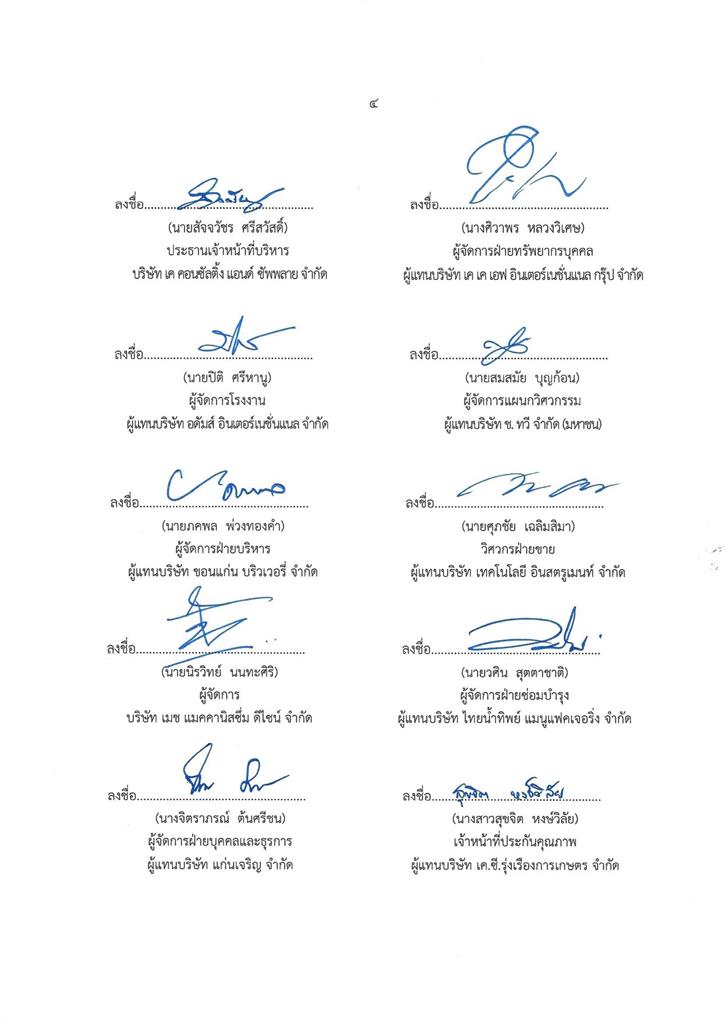 ๔
ลงชื่อ
(นายสัจจวัชร ศรีสวัสดิ์)
ประธานเจ้าหน้าที่บริหาร
บริษัท เค คอนซัลติ้ง แอนด์ ซัพพลาย จำกัด
ลงชื่อ
(นางศิวาพร หลวงวิเศษ)
ผู้จัดการฝ่ายทรัพยากรบุคคล
ผู้แทนบริษัท เค เค เอฟ อินเตอร์เนชั่นแนล กรุ๊ป จำกัด
ลงชื่อ
(นายปิติ ศรีหานู)
ผู้จัดการโรงงาน
ผู้แทนบริษัท อดัมส์ อินเตอร์เนชั่นแนล จำกัด
ลงชื่อ
(นายสมสมัย บุญก้อน)
ผู้จัดการแผนกวิศวกรรม
ผู้แทนบริษัท ช. ทวี จำกัด (มหาชน)
ลงชื่อ
(นายภคพล พ่วงทองคำ)
ผู้จัดการฝ่ายบริหาร
ผู้แทนบริษัท ขอนแก่น บริวเวอรี่ จำกัด
ลงชื่อ
(นายศุภชัย เฉลิมสิมา)
วิศวกรฝ่ายขาย
ผู้แทนบริษัท เทคโนโลยี อินสตรูเมนท์ จำกัด
ลงชื่อ
(นายนิรวิทย์ นนทะศิริ)
ผู้จัดการ
บริษัท เมช แมคคานิสซึ่ม ดีไซน์ จำกัด
ลงชื่อ
(นายวศิน สุตตาชาติ)
ผู้จัดการฝ่ายซ่อมบำรุง
ผู้แทนบริษัท ไทยน้ำทิพย์ แมนูแฟคเจอริ่ง จำกัด
ลงชื่อ
(นางจิตราภรณ์ ต้นศรีชน)
ผู้จัดการฝ่ายบุคคลและธุรการ
ผู้แทนบริษัท แก่นเจริญ จำกัด
ลงชื่อ สุขจิต หงษ์วิลัย
(นางสาวสุขจิต หงษ์วิลัย)
เจ้าหน้าที่ประกันคุณภาพ
ผู้แทนบริษัท เค.ซี.รุ่งเรืองการเกษตร จำกัด